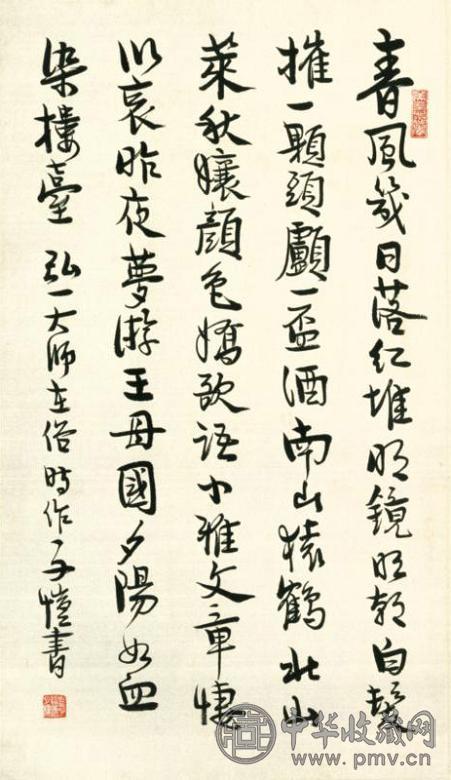 春風幾日落紅堆明鏡明朝白髮
摧一顆頭顱一盃酒南山猿鶴北山
萊秋孃顏色嬌欲語小雅文章悽
以哀昨夜夢游王母國夕陽如血
染樓臺 弘一大師在俗時作 子愷書
中华收藏网
www.pmv.cn